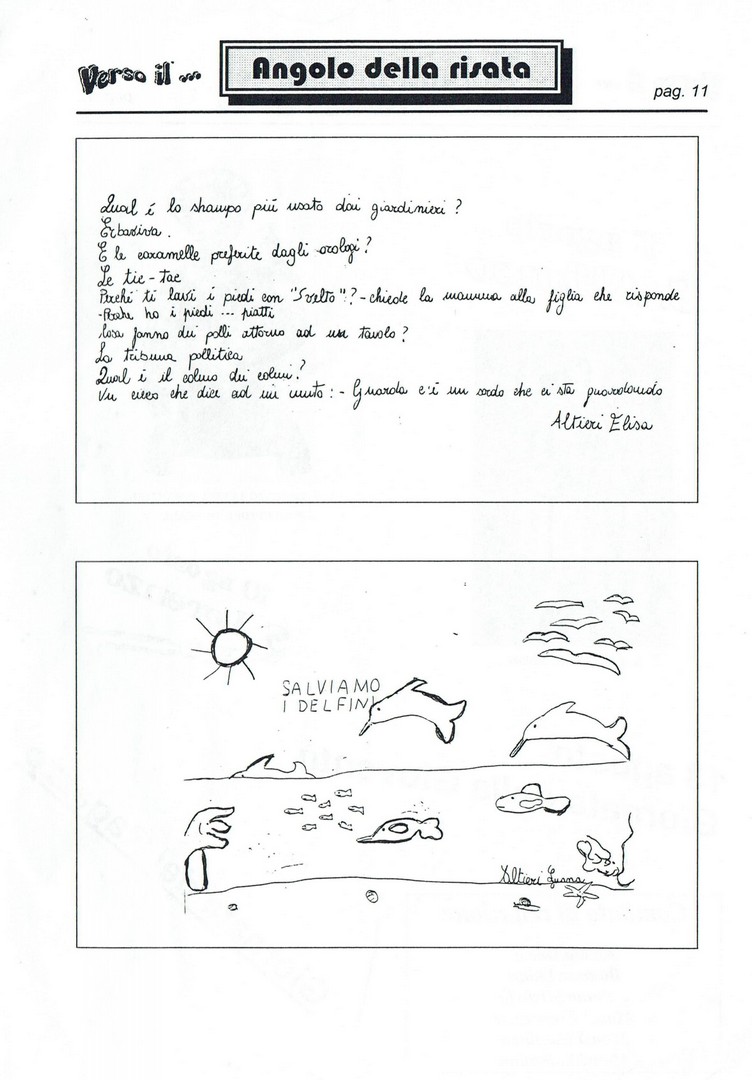 Verso il ...
Angolo della risata
pag. 11
Qual é lo shampo piú usato dai giardinieri ?
Erbaviva .
E le caramelle preferite dagli orologi ?
Le tic - tac
Perché ti lavi i piedi con "Svelto" ? - chiede la mamma alla figlia che risponde
- Perche ho i piedi ... piatti
Cosa fanno dei polli attorno ad un tavolo ?
La tribuna pollitica
Qual é il colmo dei colmi ?
Un cieco che dice ad un muto : - Guarda c'é un sordo che ci sta guardando
Altieri Elisa
SALVIAMO
I DELFINI
Altieri